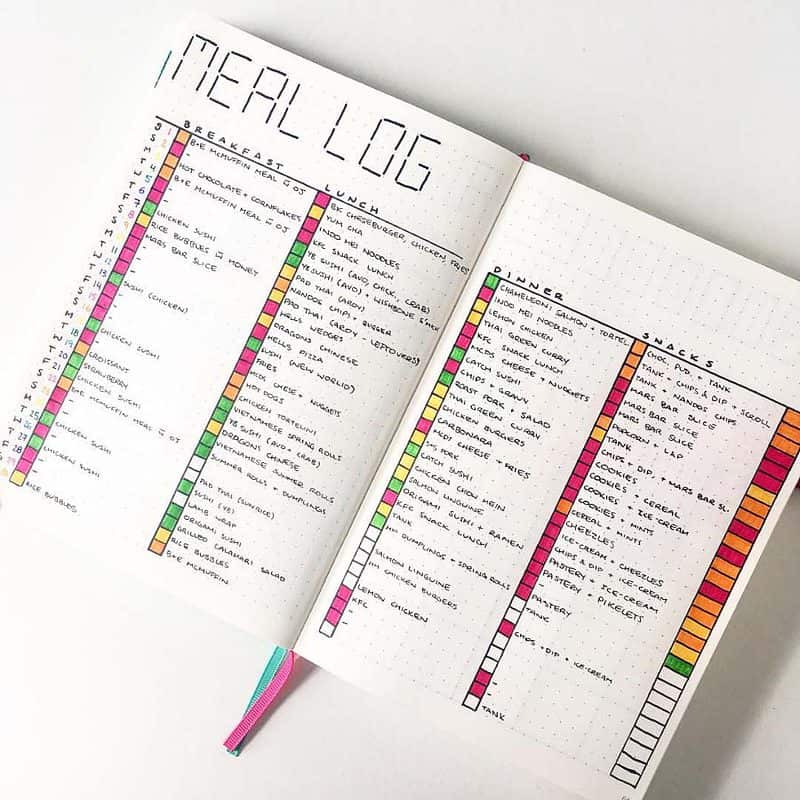 MEAL LOG
BREAKFAST
B+E MCMUFFIN MEAL W OJ
-
HOT CHOCOLATE + CORNFLAKES
B+E MCMUFFIN MEAL W OJ
-
CHICKEN SUSHI
RICE BUBBLES W HONEY
MARS BAR SLICE
-
SUSHI (CHICKEN)
-
CHICKEN SUSHI
-
CROISSANT
STRAWBERRY
CHICKEN SUSHI
B+E MCMUFFIN MEAL W OJ
-
CHICKEN SUSHI
-
CHICKEN SUSHI
-
RICE BUBBLES
LUNCH
BK CHEESEBURGER, CHICKEN, FRIES
YUM CHA
INDO MEI NOODLES
KFC SNACK LUNCH
YE SUSHI (AVO, CHICK, CRAB)
YE SUSHI (AVO) + WISHBONE
PAD THAI (AROY)
NANDOS CHIPS + BURGER
PAD THAI (AROY - LEFTOVERS)
HELLS WEDGES
DRAGONS CHINESE
HELLS PIZZA
SUSHI (NEW WORLD)
FRIES
MCDS CHEESE + NUGGETS
HOT DOGS
CHICKEN TORTELINI
VIETNAMESE SPRING ROLLS
YE SUSHI (AVO + CRAB)
DRAGONS CHINESE
VIETNAMESE SUMMER ROLLS
SUMMER ROLLS + DUMPLINGS
-
PAD THAI (SUNRICE)
SUSHI (YE)
LAMB WRAP
ORIGAMI SUSHI
GRILLED CALAMARI SALAD
RICE BUBBLES
B+E MCMUFFIN
DINNER
CHAMELEON: SALMON + TORTEL
INDO MEI NOODLES
LEMON CHICKEN
THAI GREEN CURRY
KFC SNACK LUNCH
MCDS CHEESE + NUGGETS
CATCH SUSHI
CHIPS + GRAVY
ROAST PORK + SALAD
THAI GREEN CURRY
CHICKEN BURGERS
CARBONARA
MCD CHEESE + FRIES
5S PORK
CATCH SUSHI
CHICKEN CHOW MEIN
SALMON LINGUINE
ORIGAMI SUSHI + RAMEN
KFC SNACK LUNCH
TANK
HM DUMPLINGS + SPRING ROLLS
-
SALMON LINGUINE
HM CHICKEN BURGERS
-
LEMON CHICKEN
KFC
-
SNACKS
CHOC PUD + TANK
TANK + CHIPS & DIP + SCROLL
TANK + NANDOS CHIPS
MARS BAR SLICE
MARS BAR SLICE
MARS BAR SLICE
POPCORN + LAP
TANK
CHIPS + DIP + MARS BAR SL.
COOKIES
COOKIES + CEREAL
COOKIES + ICE-CREAM
COOKIES + MINTS
CEREAL + MINTS
CHEEZLES
ICE-CREAM + CHEEZLES
CHIPS & DIP + ICE-CREAM
PASTERY + ICE-CREAM
PASTERY + PIKELETS
-
PASTERY
TANK
-
CHOS + DIP + ICE-CREAM
-
-
-
TANK